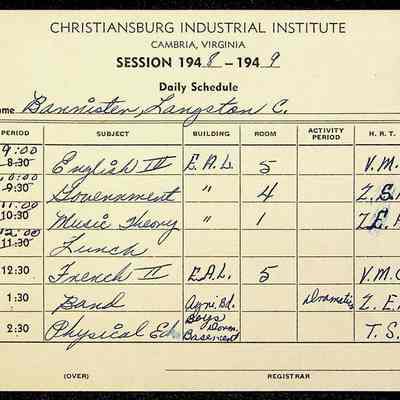 CHRISTIANSBURG INDUSTRIAL INSTITUTE
CAMBRIA, VIRGINIA
SESSION 1948-1949
Daily Schedule
ome Bannister, Langston C.
PERIOD SUBJECT BUILDING ROOM ACTIVITY PERIOD H. R. T.
9:00 8:30 English IV E.A.L. 5 V.M.
10:00 9:30 Government " 4 Z.E.
11:00 10:30 Music Theory " 1 Z.E.
12:00 11:30 Lunch
12:30 French II E.A.L. 5 V.M.C
1:30 Band Agri. Bd. Dramatic Z.E.
2:30 Physical Ed. Boys Dorm. Basement T.S.
(OVER) REGISTRAR